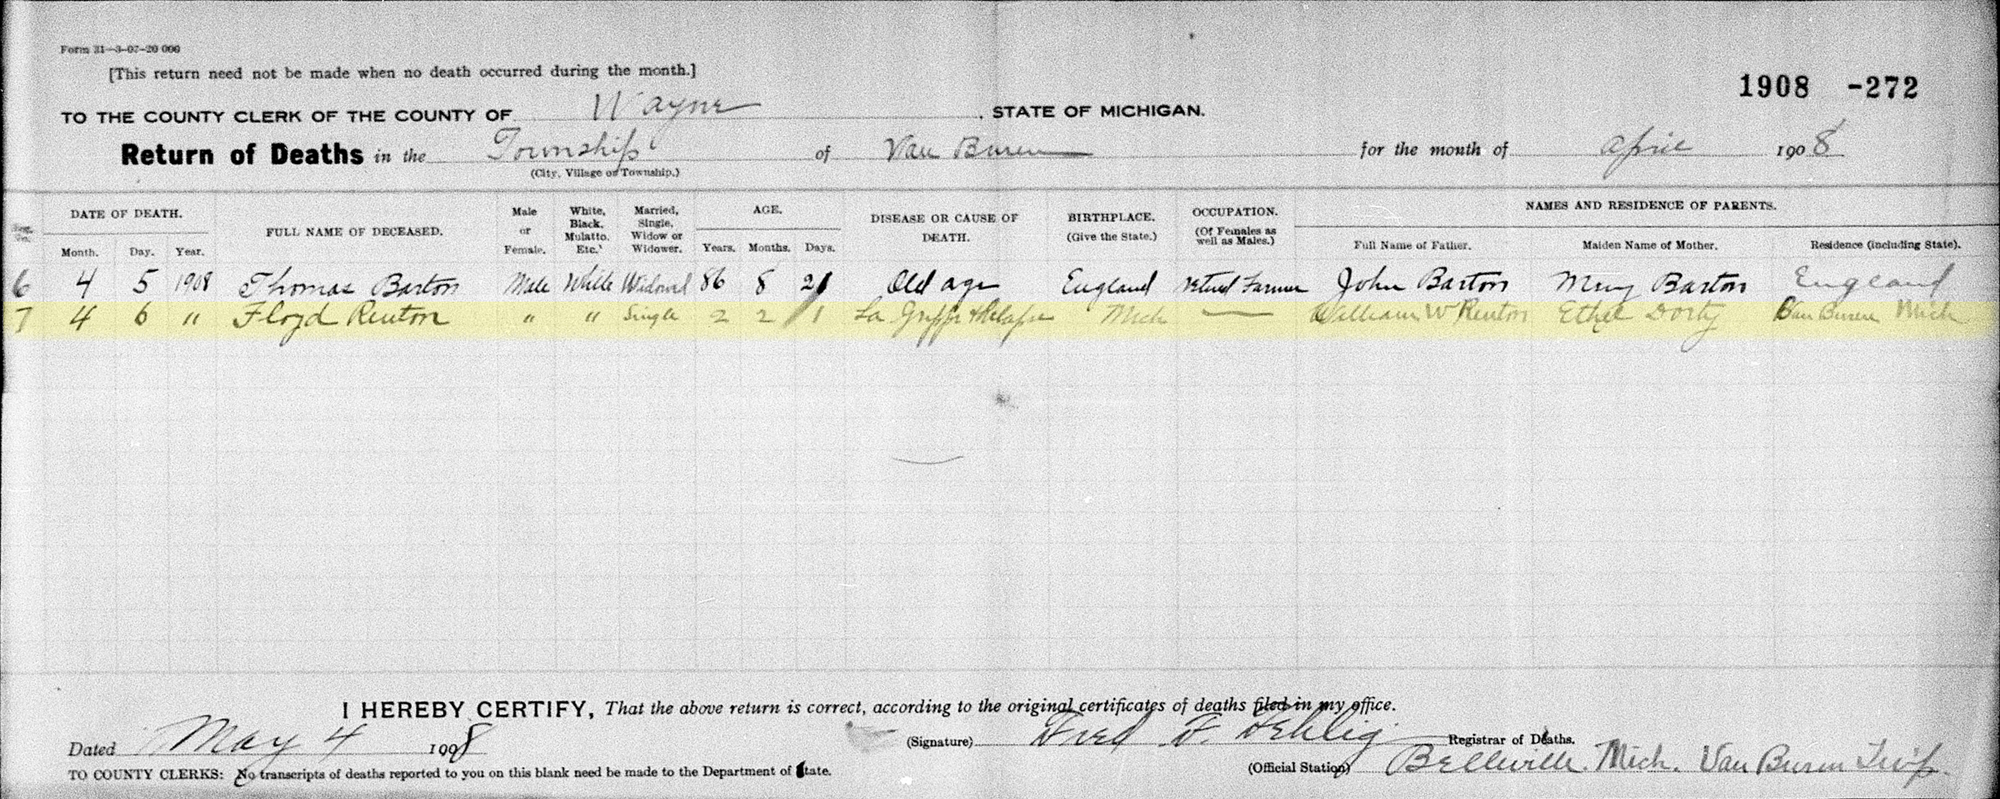 Form 31—3-07-20 000
[This return need not be made when no death occurred during the month.]
1908 -272
TO THE COUNTY CLERK OF THE COUNTY OF Wayne, STATE OF MICHIGAN.
Return of Deaths in the Township of Van Buren for the month of April 1908
(City, Village or Township.)
DATE OF DEATH. FULL NAME OF DECEASED. Male or Female. White, Black, Mulatto, Etc. Married, Single, Widow or Widower. AGE. DISEASE OR CAUSE OF DEATH. BIRTHPLACE. (Give the State.) OCCUPATION. (Of Females as well as Males.) NAMES AND RESIDENCE OF PARENTS.
Month. Day. Year. Years. Months. Days. Full Name of Father. Maiden Name of Mother. Residence (including State).
6 4 5 1908 Thomas Barton Male White Widowd 86 8 21 Old age England Retired Farmer John Barton Mary Barton England
7 4 6 " Floyd Renton " " Single 2 2 1 La Grippe & Relapse Mich — William W Renton Ethel Dorty Van Buren Mich
I HEREBY CERTIFY, That the above return is correct, according to the original certificates of deaths filed in my office.
Dated May 4 1908 (Signature) Fred F. Fehlig Registrar of Deaths.
TO COUNTY CLERKS: No transcripts of deaths reported to you on this blank need be made to the Department of State. (Official Station) Belleville. Mich. Van Buren Twp.